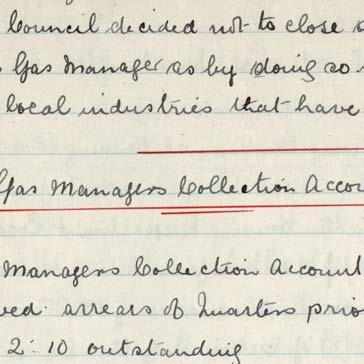 Council decided not to close
Gas Manager as by doing so
local industries that have
Gas Managers Collection Accou
Managers Collection Account
ved: arrears of Quarters prio
2: 10 outstanding